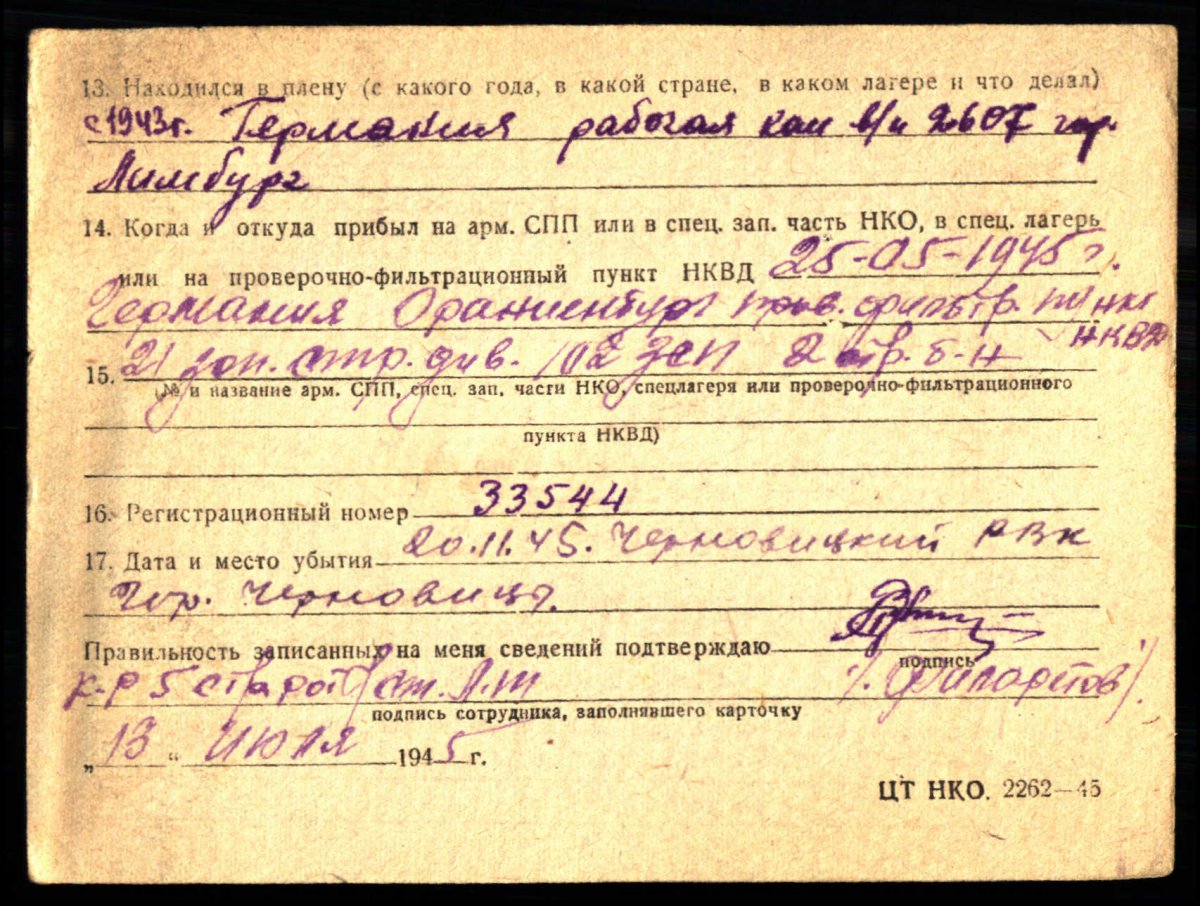 13. Находился в плену (с какого года, в какой стране, в каком лагере и что делал)
с 1943 г. Германия рабочая в/п 2607 гор.
Лимбург
14. Когда и откуда прибыл на арм. СПП или в спец. зап. часть НКО, в спец. лагерь
или на проверочно-фильтрационный пункт НКВД 25-05-1945 г.
Германия Ораниенбург пров. фильтр. пункт
НКВД
15. 21 зап. стр. див. 102 зсп 2 стр. б-н
(№ и название арм. СПП, спец. зап. части НКО, спецлагеря или проверочно-фильтрационного
пункта НКВД)
16. Регистрационный номер 33544
17. Дата и место убытия 20.11.45. Черновицкий РВК
гор. Черновицы.
Правильность записанных на меня сведений подтверждаю
подпись
к-р 5 ст. л-т /Филаретов/
подпись сотрудника, заполнявшего карточку
„13“ июля 1945 г.
ЦТ НКО. 2262—45